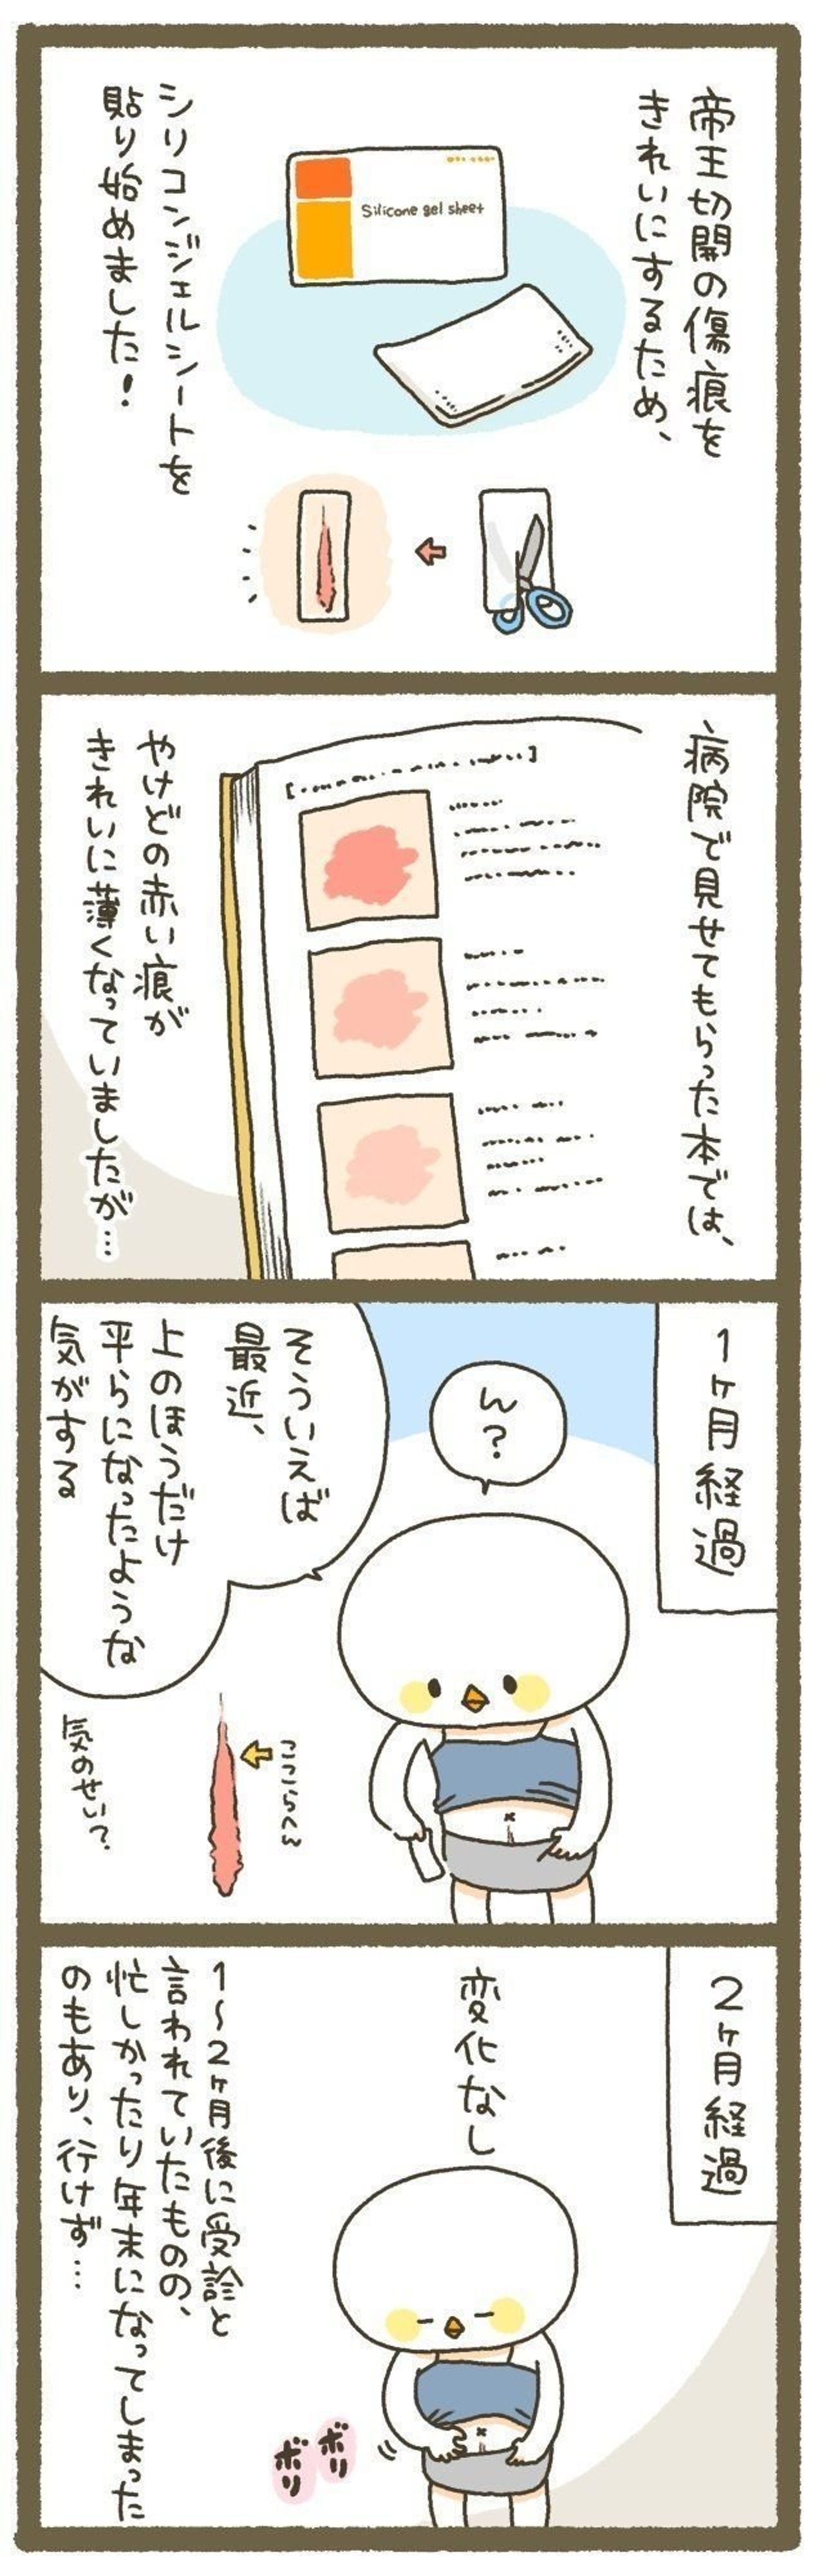 帝王切開の傷痕を
きれいにするため、
Silicone gel sheet
シリコンジェルシートを
貼り始めました!
病院で見せてもらった本では、
やけどの赤い痕が
きれいに薄くなっていましたが…
1ヶ月経過
ん?
そういえば
最近、
上のほうだけ
平らになったような
気がする
ここらへん
気のせい?
2ヶ月経過
変化なし
ボリ
ボリ
1~2ヶ月後に受診と
言われていたものの、
忙しかったり年末になってしまった
のもあり、行けず…